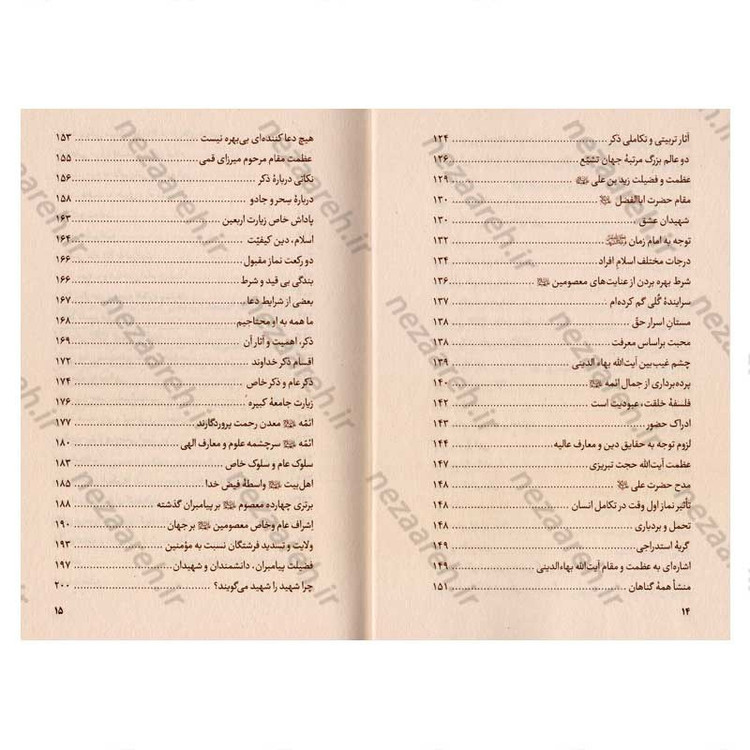 آثار تربیتی و تکاملی ذکر ........ ۱۲۴
دو عالم بزرگ مرتبهٔ جهان تشیّع ........ ۱۲۶
عظمت و فضیلت زید بن علی ........ ۱۲۹
مقام حضرت اباالفضل ........ ۱۳۰
شهیدان عشق ........ ۱۳۰
توجه به امام زمان ........ ۱۳۲
درجات مختلف اسلام افراد ........ ۱۳۴
شرط بهره بردن از عنایت‌های معصومین ........ ۱۳۶
سرایندهٔ گُلی گم کرده‌ام ........ ۱۳۷
مستانِ اسرار حقّ ........ ۱۳۸
محبت براساس معرفت ........ ۱۳۸
چشم غیب‌بین آیت‌الله بهاءالدینی ........ ۱۳۹
پرده‌برداری از جمال ائمه ........ ۱۴۰
فلسفهٔ خلقت، عبودیت است ........ ۱۴۲
ادراک حضور ........ ۱۴۳
لزوم توجه به حقایق دین و معارف عالیه ........ ۱۴۴
عظمت آیت‌الله حجت تبریزی ........ ۱۴۷
مدح حضرت علی ........ ۱۴۸
تأثیر نماز اول وقت در تکامل انسان ........ ۱۴۸
تحمل و بردباری ........ ۱۴۸
گریهٔ استدراجی ........ ۱۴۹
اشاره‌ای به عظمت و مقام آیت‌الله بهاءالدینی ........ ۱۴۹
منشأ همهٔ گناهان ........ ۱۵۱
۱۴
هیچ دعا کننده‌ای بی‌بهره نیست ........ ۱۵۳
عظمت مقام مرحوم میرزای قمی ........ ۱۵۵
نکاتی دربارهٔ ذکر ........ ۱۵۶
دربارهٔ سِحر و جادو ........ ۱۵۸
پاداش خاص زیارت اربعین ........ ۱۶۳
اسلام، دین کیفیّت ........ ۱۶۴
دو رکعت نماز مقبول ........ ۱۶۶
بندگی بی قید و شرط ........ ۱۶۶
بعضی از شرایط دعا ........ ۱۶۷
ما همه به او محتاجیم ........ ۱۶۸
ذکر، اهمیت و آثار آن ........ ۱۶۹
اقسام ذکر خداوند ........ ۱۷۲
ذکر عام و ذکر خاص ........ ۱۷۴
زیارت جامعهٔ کبیره ........ ۱۷۶
ائمّه معدن رحمت پروردگارند ........ ۱۷۷
ائمّه سرچشمه علوم و معارف الهی ........ ۱۸۰
سلوک عام و سلوک خاص ........ ۱۸۳
اهل‌بیت واسطهٔ فیض خدا ........ ۱۸۵
برتری چهارده معصوم بر پیامبران گذشته ........ ۱۸۸
اِشراف عام وخاص معصومین بر جهان ........ ۱۹۰
ولایت و تسدید فرشتگان نسبت به مؤمنین ........ ۱۹۳
فضیلت پیامبران، دانشمندان و شهیدان ........ ۱۹۷
چرا شهید را شهید می‌گویند؟ ........ ۲۰۰
۱۵
nezaareh.ir